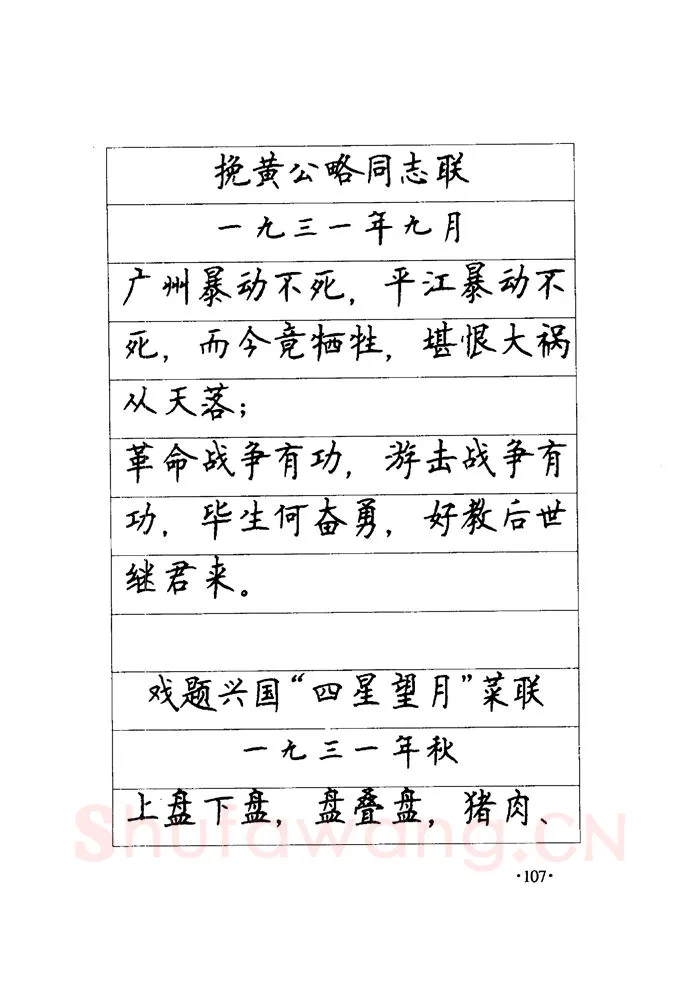 挽黄公略同志联
一九三一年九月
广州暴动不死，平江暴动不
死，而今竟牺牲，堪恨大祸
从天落；
革命战争有功，游击战争有
功，毕生何奋勇，好教后世
继君来。
戏题兴国“四星望月”菜联
一九三一年秋
上盘下盘，盘叠盘，猪肉、
Shufawang.CN
·107·